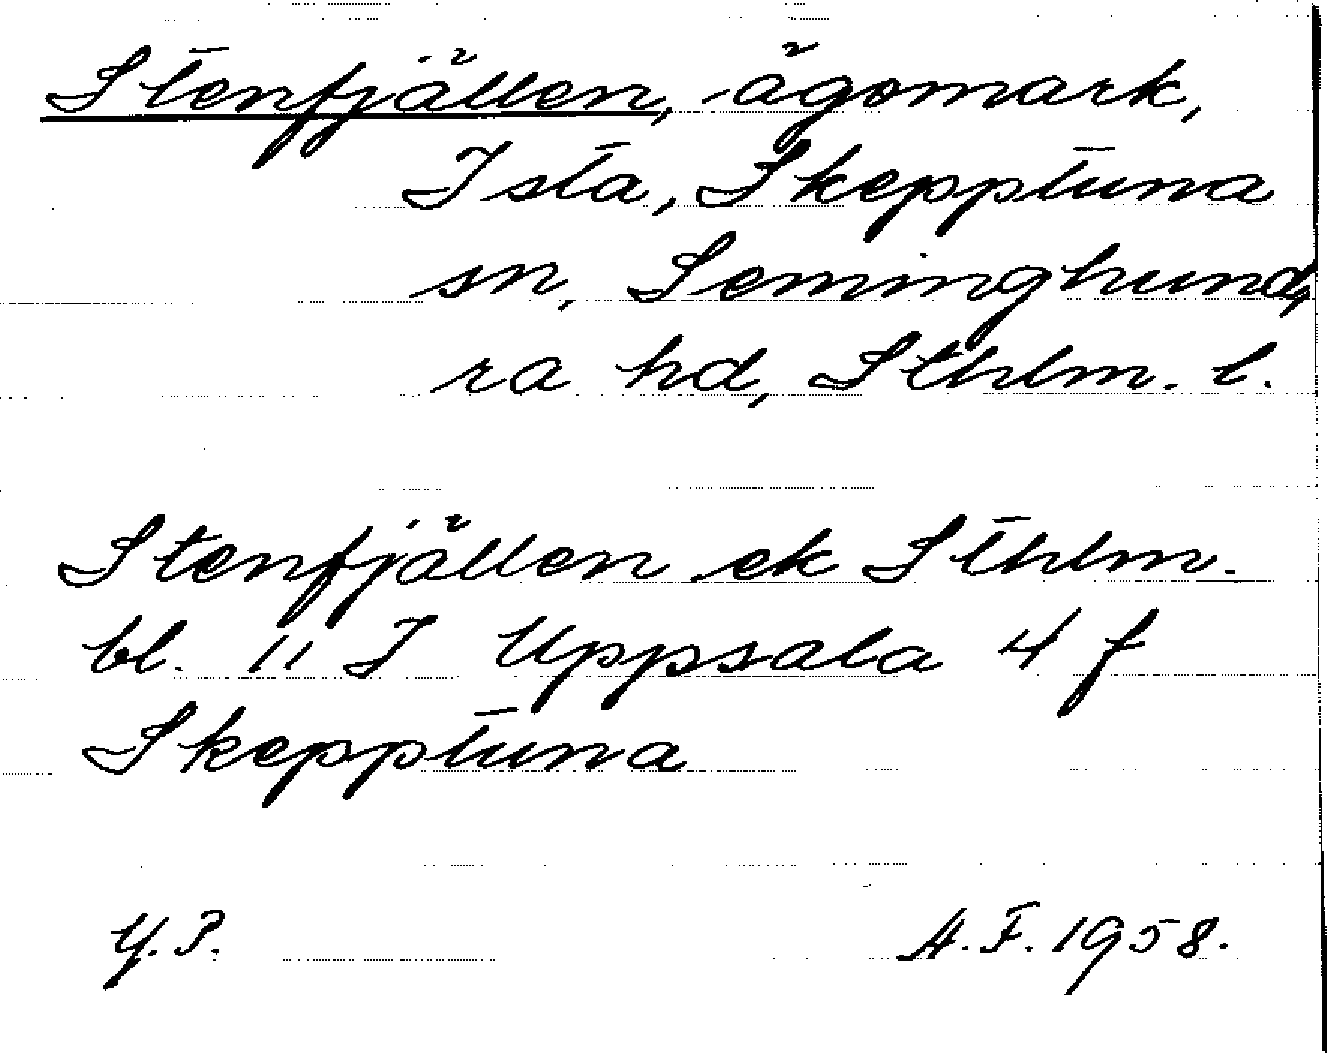 Stenfjällen, ägomark,
Ista, Skepptuna
sn, Seminghund,
ra hd, Sthlm. l.
Stenfjällen ek Sthlm.
bl. 11 I Uppsala 4 f
Skepptuna
Y.P.
A.F. 1958.